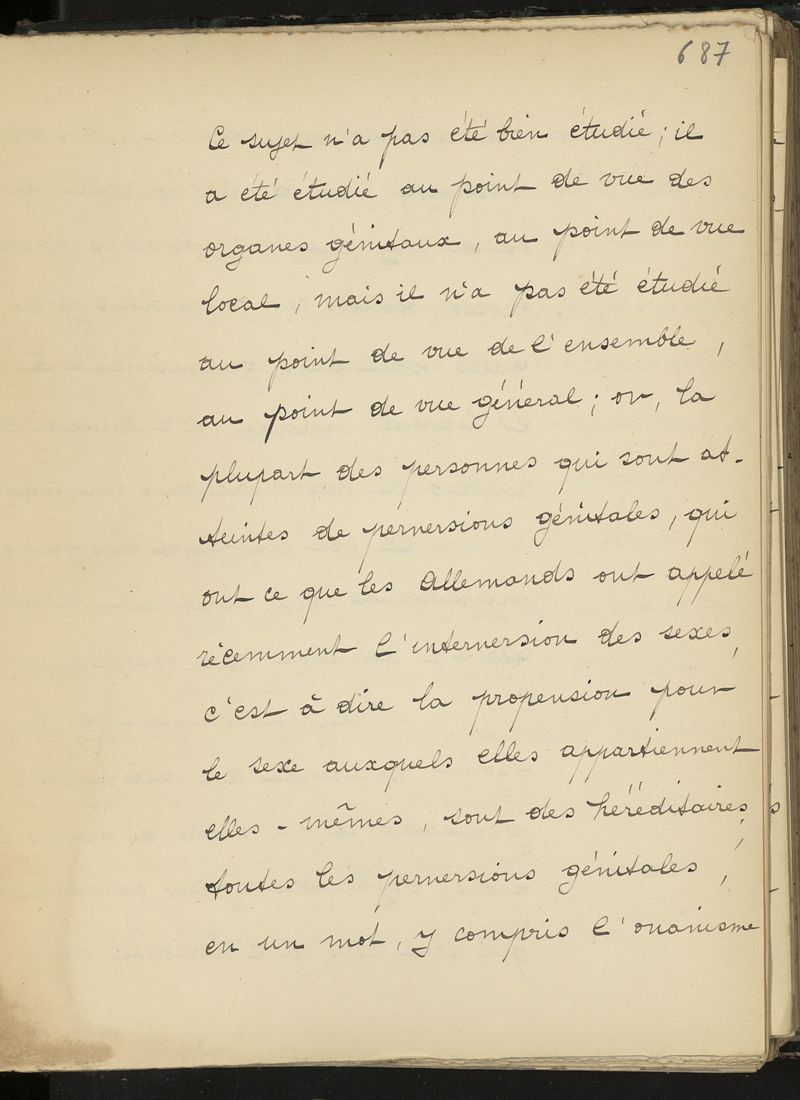 687
Ce sujet n'a pas été bien étudié ; il
a été étudié au point de vue des
organes génitaux, au point de vue
local, mais il n'a pas été étudié
au point de vue de l'ensemble,
au point de vue général ; or, la
plupart des personnes qui sont at-
teintes de perversions génitales, qui
ont ce que les Allemands ont appelé
récemment l'interversion des sexes,
c'est à dire la propension pour
le sexe auxquels elles appartiennent
elles-mêmes, sont des héréditaires ;
toutes les perversions génitales,
en un mot, y compris l'onanisme